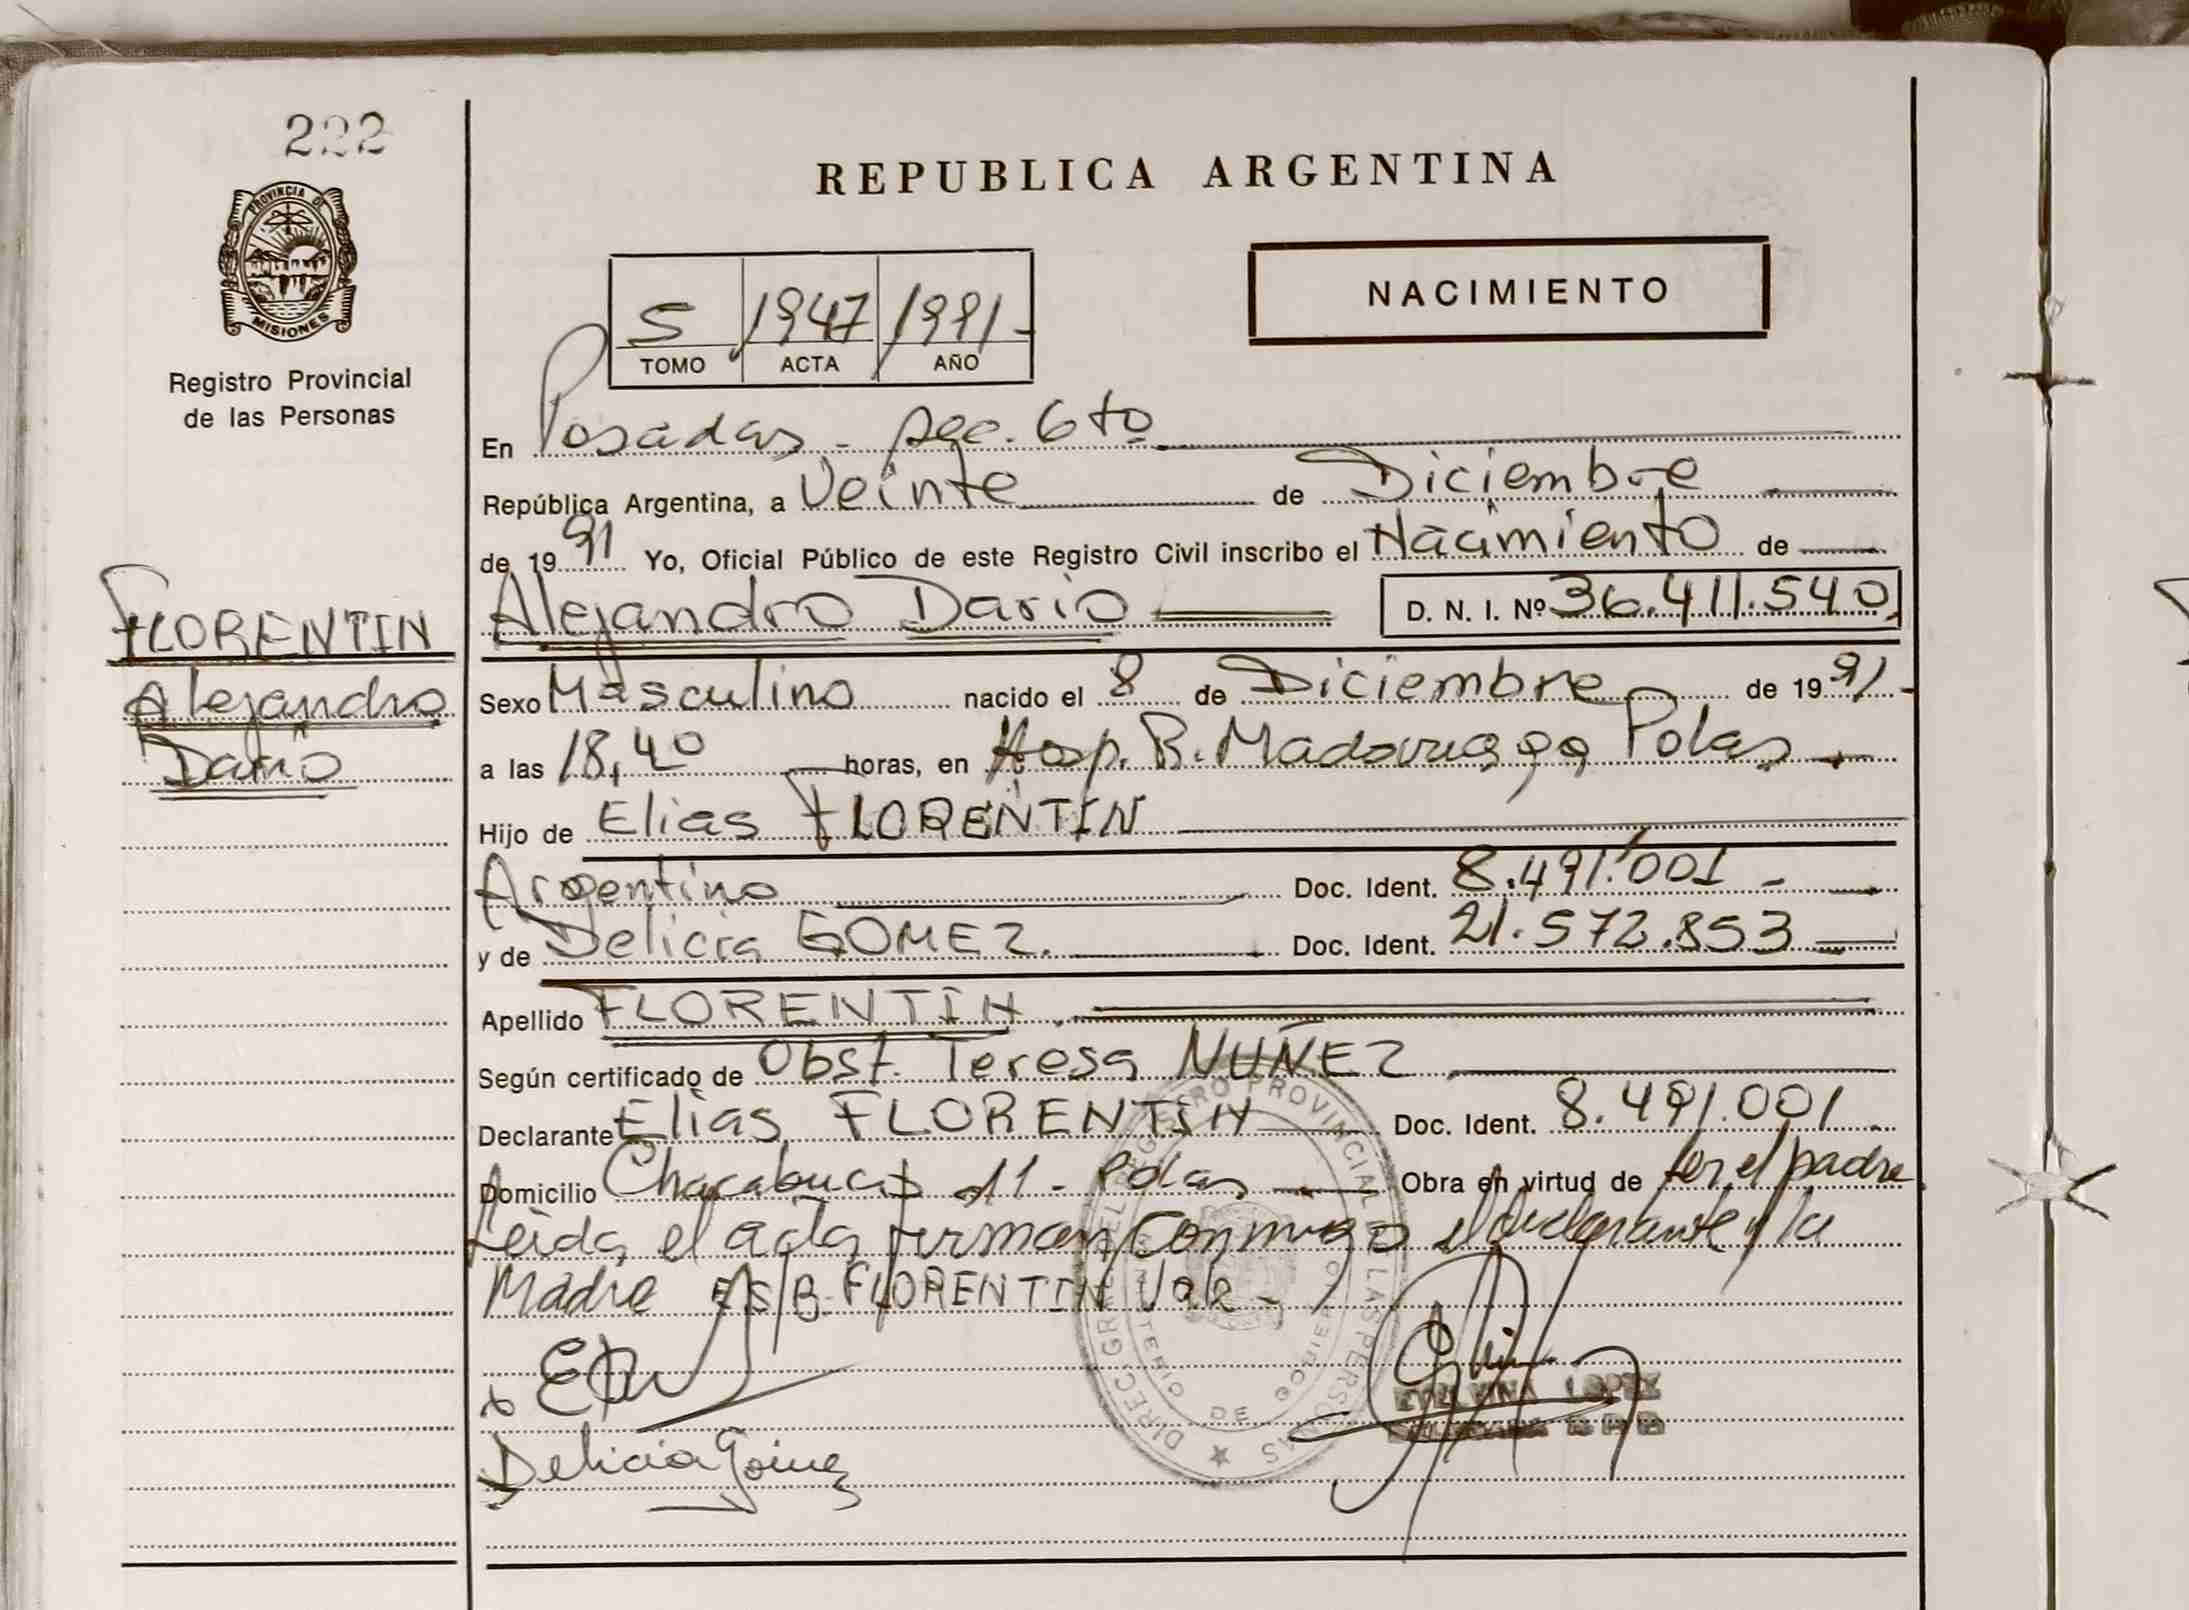 222
PROVINCIA DE
MISIONES
Registro Provincial
de las Personas
FLORENTIN
Alejandro
Dario
REPUBLICA ARGENTINA
NACIMIENTO
5 1947 1991-
TOMO ACTA AÑO
En Posadas - sec. 6to
República Argentina, a Veinte de Diciembre
de 1991 Yo, Oficial Público de este Registro Civil inscribo el Nacimiento de
Alejandro Dario D. N. I. Nº 36.411.540
Sexo Masculino nacido el 8 de Diciembre de 1991-
a las 18,40 horas, en Hosp. R. Madariaga Pdas -
Hijo de Elias FLORENTIN
Argentino Doc. Ident. 8.491.001 -
y de Delicia GOMEZ. Doc. Ident. 21.572.853
Apellido FLORENTIN
Según certificado de Obst. Teresa NUÑEZ
Declarante Elias FLORENTIN Doc. Ident. 8.491.001
Domicilio Chacabuco 11 - Pdas Obra en virtud de ser el padre
Leida el acta firman conmigo el declarante y la
Madre E/S/R. FLORENTIN Vale -
Delicia Gomez
LOPEZ
DIREC. GRAL. DEL REGISTRO PROVINCIAL DE LAS PERSONAS
DE GOBIERNO